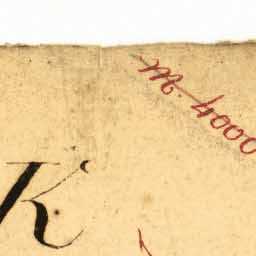 m. 4000
K